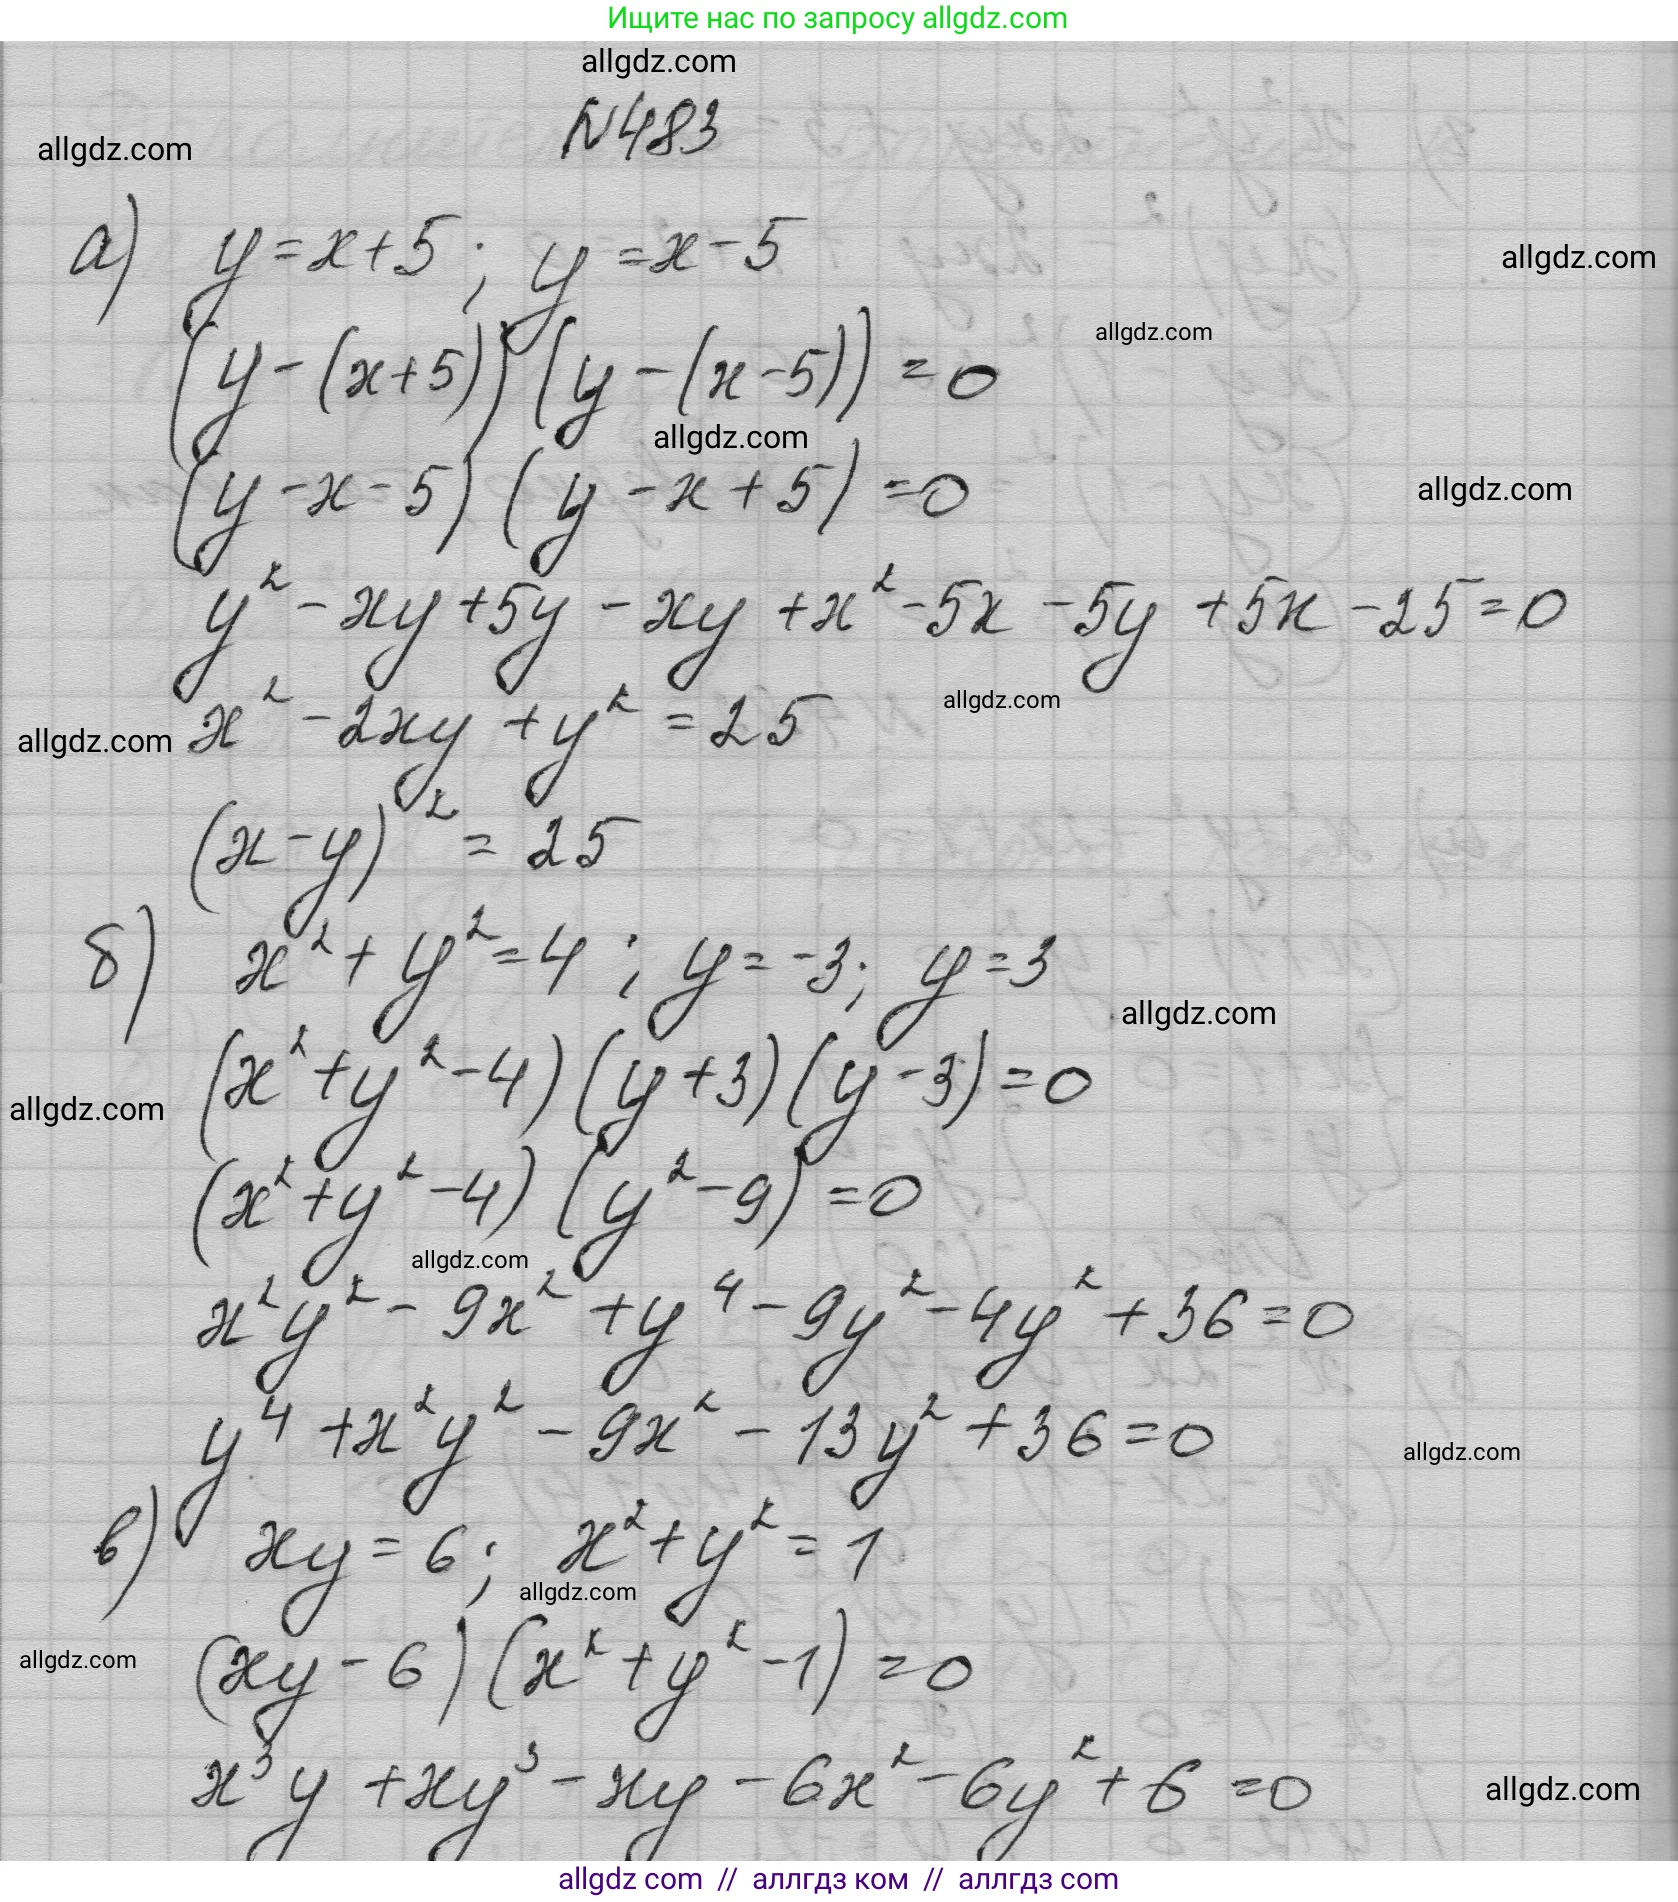 Ищите нас по запросу allgdz.com
allgdz.com
N483
allgdz.com
а) y = x + 5 ; y = x - 5
allgdz.com
allgdz.com
(y - (x + 5)) (y - (x - 5)) = 0
allgdz.com
(y - x - 5) (y - x + 5) = 0
allgdz.com
y² - xy + 5y - xy + x² - 5x - 5y + 5x - 25 = 0
allgdz.com
x² - 2xy + y² = 25
allgdz.com
(x - y)² = 25
б) x² + y² = 4 ; y = -3 ; y = 3
allgdz.com
(x² + y² - 4) (y + 3) (y - 3) = 0
allgdz.com
(x² + y² - 4) (y² - 9) = 0
allgdz.com
x²y² - 9x² + y⁴ - 9y² - 4y² + 36 = 0
y⁴ + x²y² - 9x² - 13y² + 36 = 0
allgdz.com
в) xy = 6 ; x² + y² = 1
allgdz.com
allgdz.com
(xy - 6) (x² + y² - 1) = 0
x³y + xy³ - xy - 6x² - 6y² + 6 = 0
allgdz.com
allgdz.com // аллгдз ком // аллгдз com